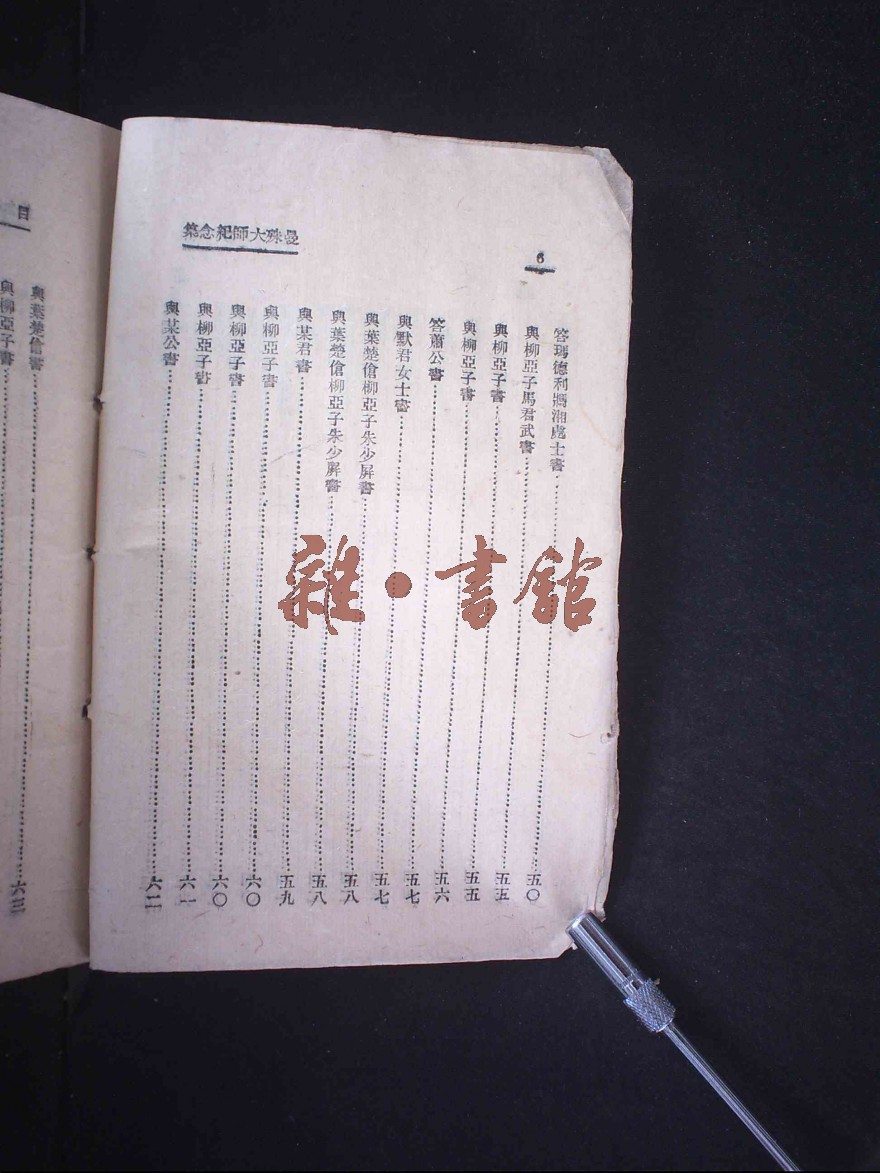 曼殊大師紀念集
6
答瑪德利莊湘處士書……五〇
與柳亞子馬君武書……五五
與柳亞子書……五五
與柳亞子書……五六
答蕭公書……五七
與默君女士書……五七
與葉楚傖柳亞子朱少屏書……五八
與葉楚傖柳亞子朱少屏書……五八
與某君書……五九
與柳亞子書……六〇
與柳亞子書……六〇
與柳亞子書……六一
與某公書……六二
目
與葉楚傖書……六三
與柳亞子書……
雜·書館